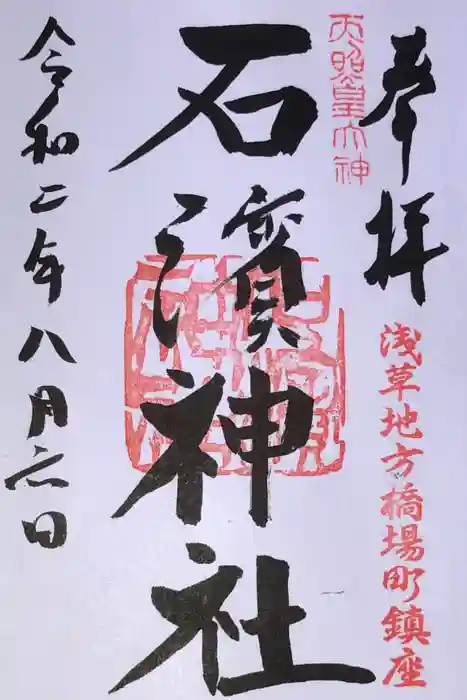 奉拝
天照皇大神
浅草地方橋場町鎮座
石濱神社
令和二年八月六日